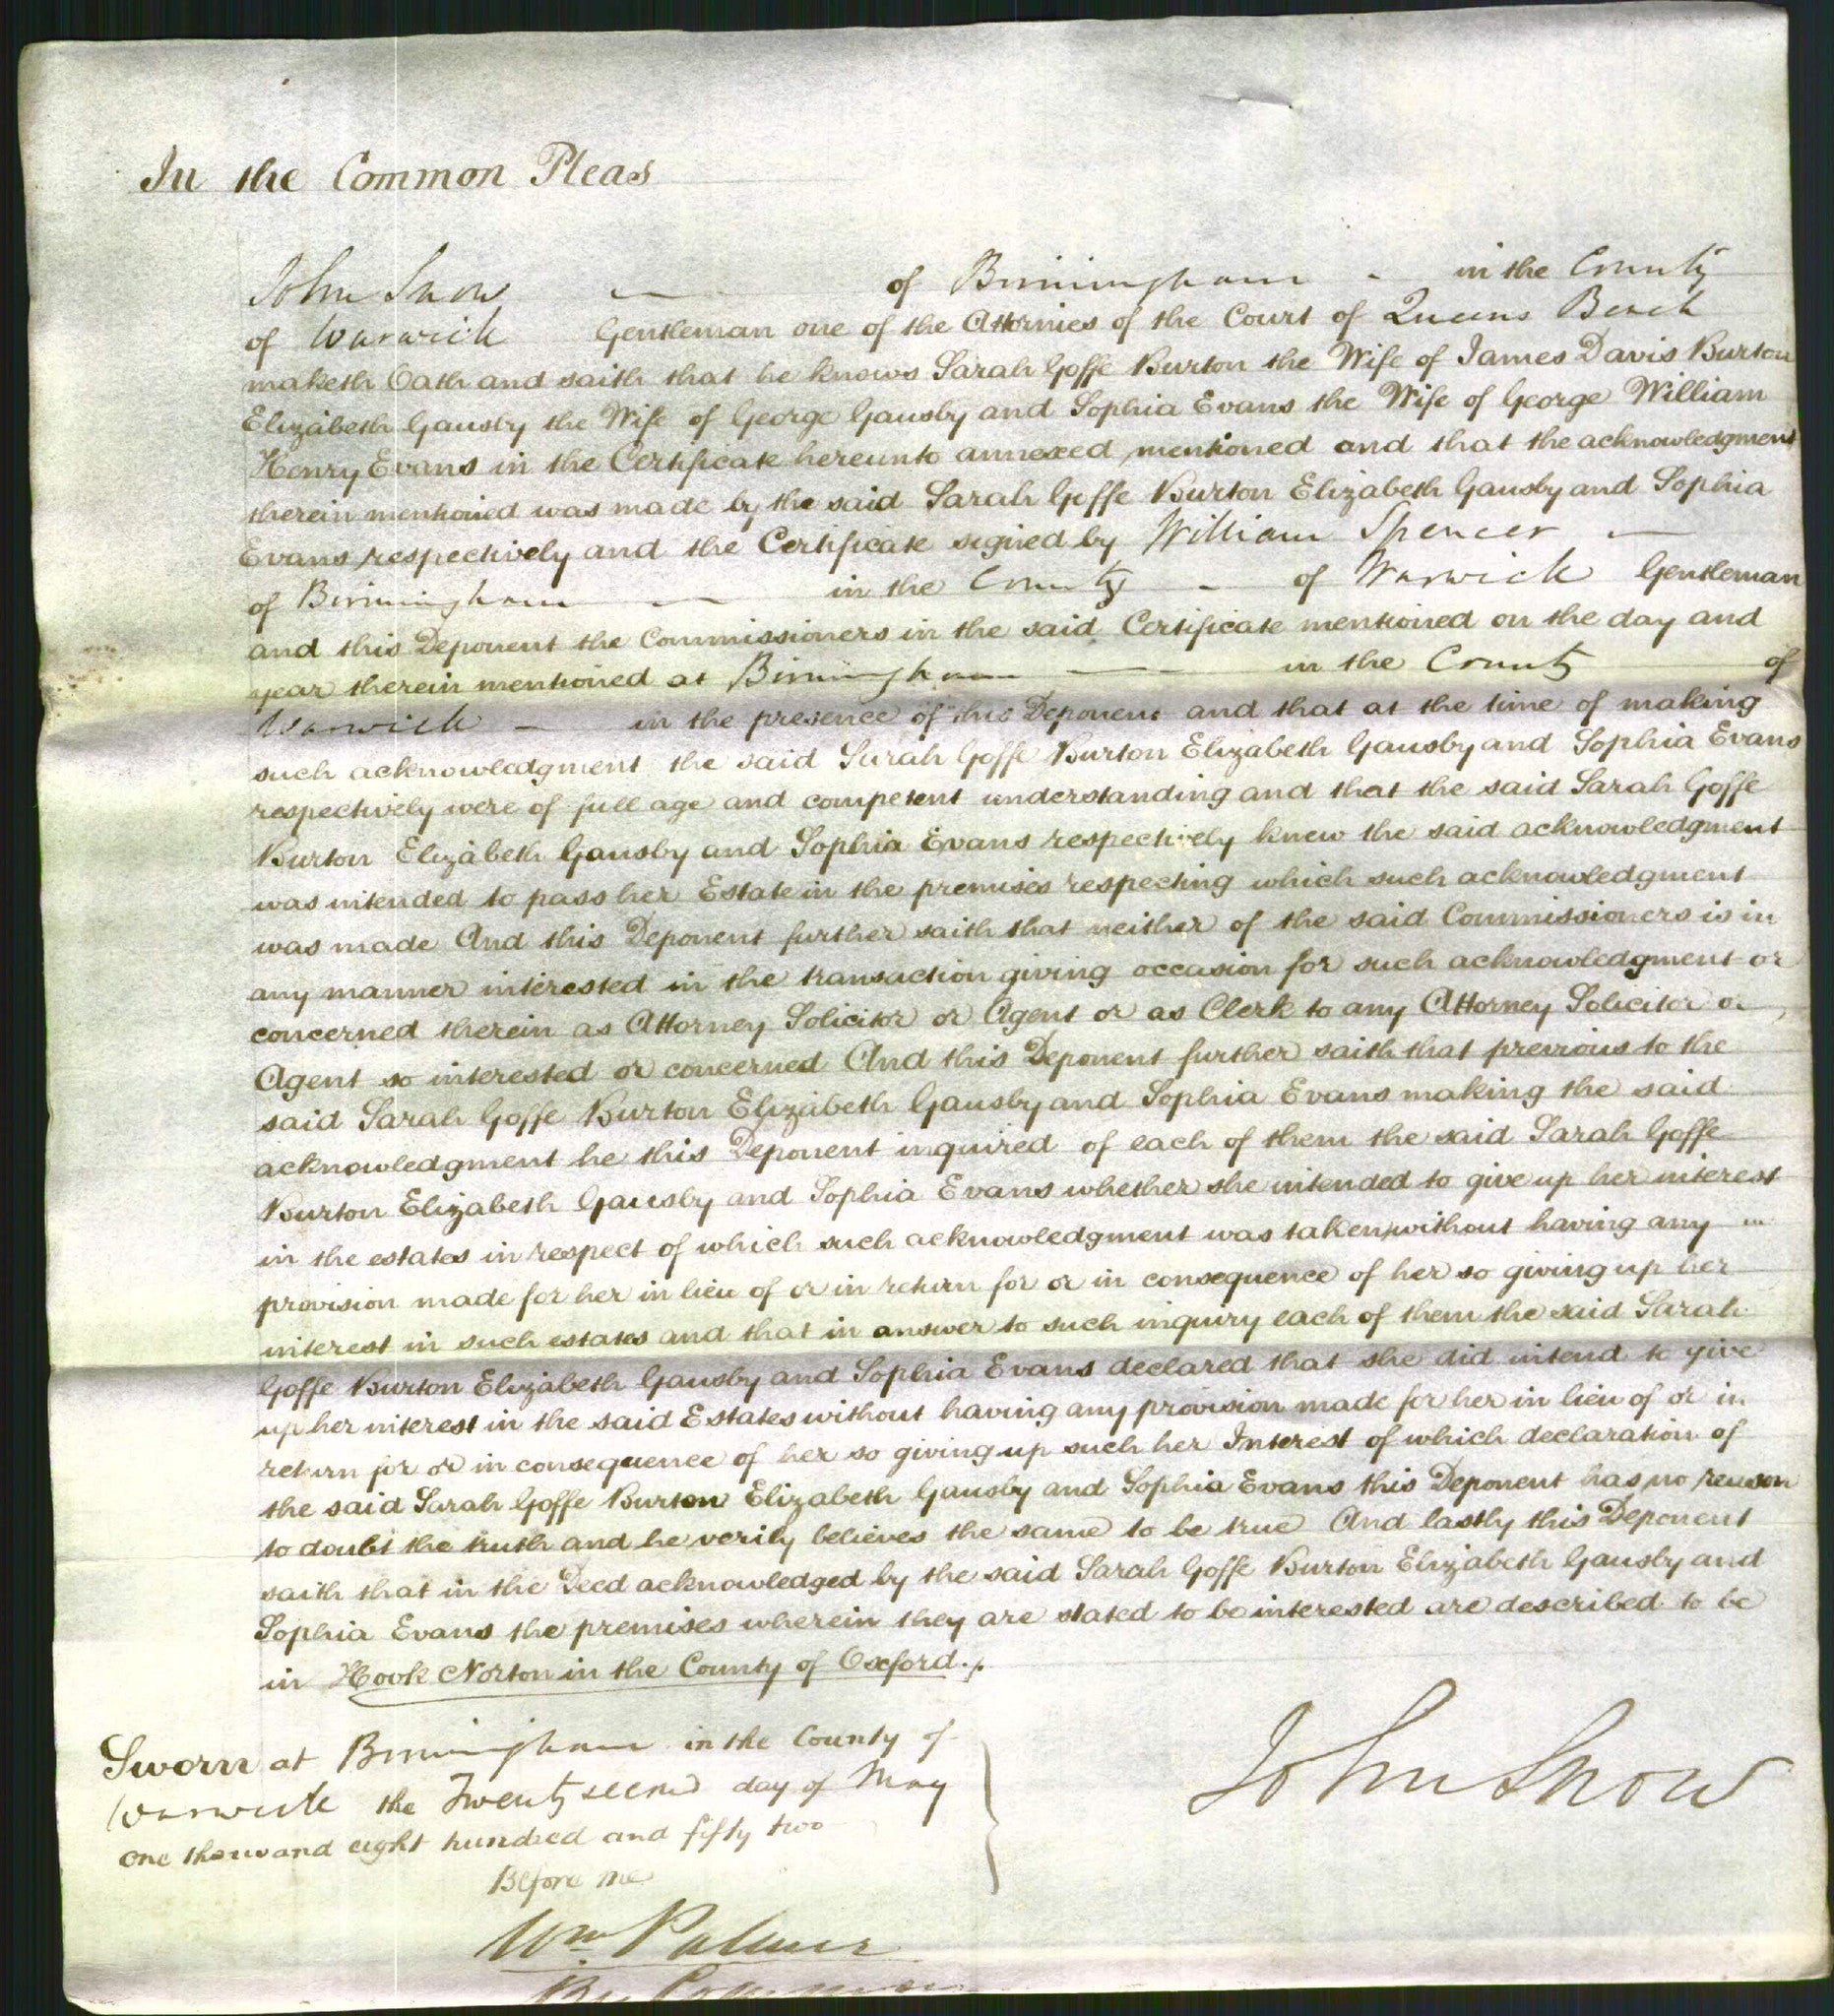 In the Common Pleas
John Snow of Birmingham in the County
of Warwick Gentleman one of the Attornies of the Court of Queens Bench
maketh Oath and saith that he knows Sarah Goffe Burton the Wife of James Davis Burton
Elizabeth Gausby the Wife of George Gausby and Sophia Evans the Wife of George William
Henry Evans in the Certificate hereunto annexed mentioned and that the acknowledgment
therein mentioned was made by the said Sarah Goffe Burton Elizabeth Gausby and Sophia
Evans respectively and the Certificate signed by William Spencer
of Birmingham in the County of Warwick Gentleman
and this Deponent the Commissioners in the said Certificate mentioned on the day and
year therein mentioned at Birmingham in the County of
Warwick in the presence of this Deponent and that at the time of making
such acknowledgment the said Sarah Goffe Burton Elizabeth Gausby and Sophia Evans
respectively were of full age and competent understanding and that the said Sarah Goffe
Burton Elizabeth Gausby and Sophia Evans respectively knew the said acknowledgment
was intended to pass her Estate in the premises respecting which such acknowledgment
was made And this Deponent further saith that neither of the said Commissioners is in
any manner interested in the transaction giving occasion for such acknowledgment or
concerned therein as Attorney Solicitor or Agent or as Clerk to any Attorney Solicitor or
Agent so interested or concerned And this Deponent further saith that previous to the
said Sarah Goffe Burton Elizabeth Gausby and Sophia Evans making the said
acknowledgment he this Deponent inquired of each of them the said Sarah Goffe
Burton Elizabeth Gausby and Sophia Evans whether she intended to give up her interest
in the estates in respect of which such acknowledgment was taken without having any
provision made for her in lieu of or in return for or in consequence of her so giving up her
interest in such estates and that in answer to such inquiry each of them the said Sarah
Goffe Burton Elizabeth Gausby and Sophia Evans declared that she did intend to give
up her interest in the said Estates without having any provision made for her in lieu of or in
return for or in consequence of her so giving up such her Interest of which declaration of
the said Sarah Goffe Burton Elizabeth Gausby and Sophia Evans this Deponent has no reason
to doubt the truth and he verily believes the same to be true And lastly this Deponent
saith that in the Deed acknowledged by the said Sarah Goffe Burton Elizabeth Gausby and
Sophia Evans the premises wherein they are stated to be interested are described to be
in Hook Norton in the County of Oxford.
Sworn at Birmingham in the County of
Warwick the Twenty second day of May
one thousand eight hundred and fifty two
Before me
John Snow
Wm Palmer